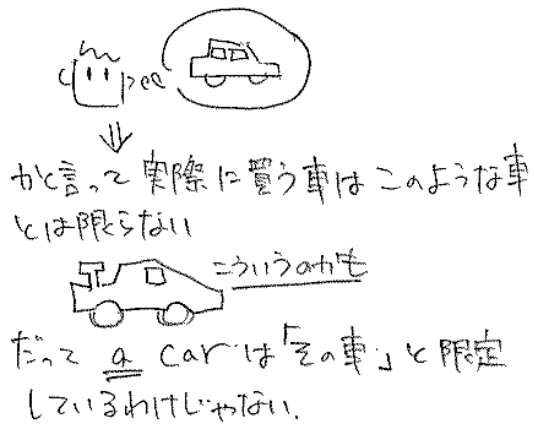 かと言って実際に買う車はこのような車
とは限らない
こういうのかも
だって a car は「その車」と限定
しているわけじゃない.